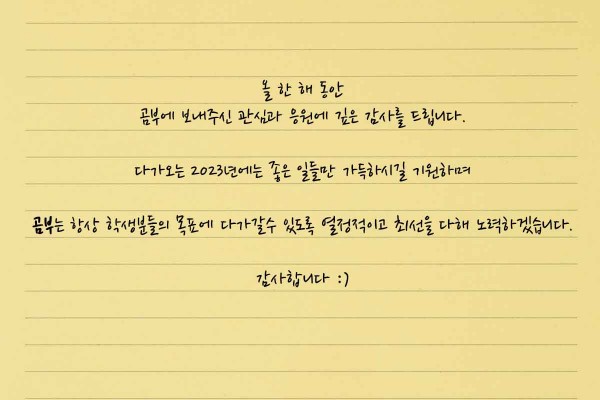 올 한 해 동안
곰부에 보내주신 관심과 응원에 깊은 감사를 드립니다.
다가오는 2023년에는 좋은 일들만 가득하시길 기원하며
곰부는 항상 학생분들의 목표에 다가갈수 있도록 열정적이고 최선을 다해 노력하겠습니다.
감사합니다 :)